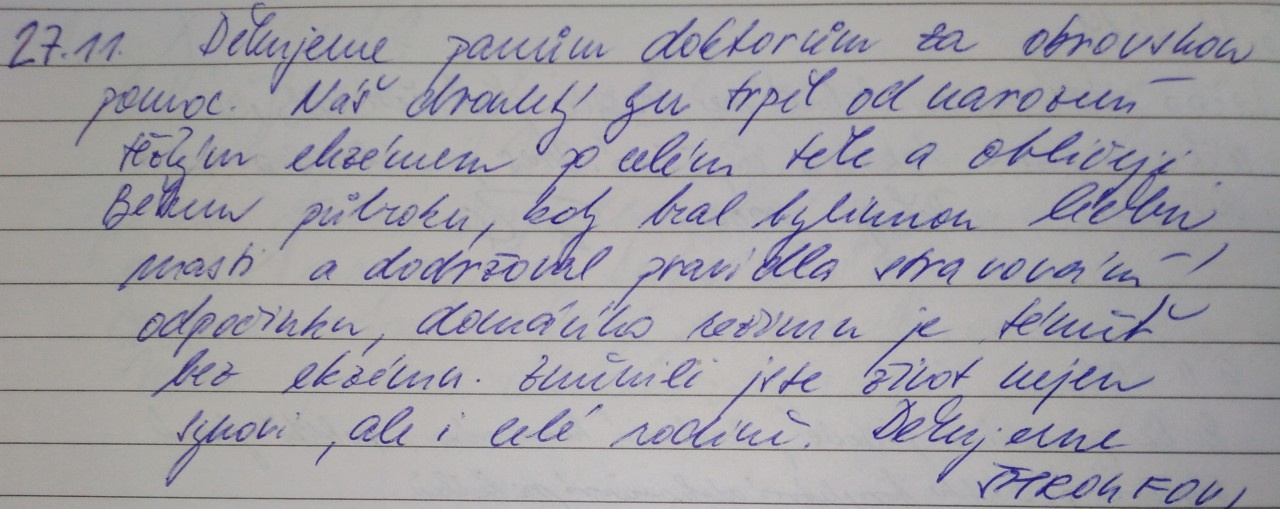 27.11. Děkujeme panům doktorům za obrovskou
pomoc. Náš dvouletý syn trpěl od narození
těžkým ekzémem po celém těle a obličeji.
Během půlroku, kdy bral bylinnou léčbu
masti a dodržoval pravidla stravování,
odpočinku, domácího režimu je téměř
bez ekzému. Změnili jste život nejen
synovi, ale i celé rodině. Děkujeme